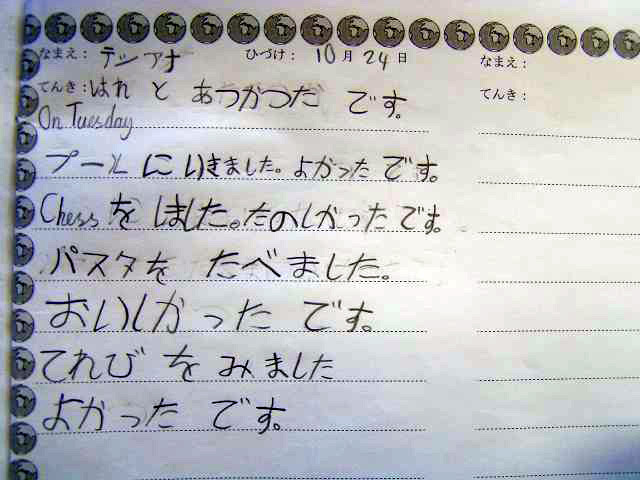 なまえ: テシアナ ひづけ: 10月24日 なまえ:
てんき: はれ と あつかつだ です。 てんき:
On Tuesday
プールにいきました。よかったです。
Chess を しました。たのしかったです。
パスタを たべました。
おいしかった です。
てれび を みました
よかった です。